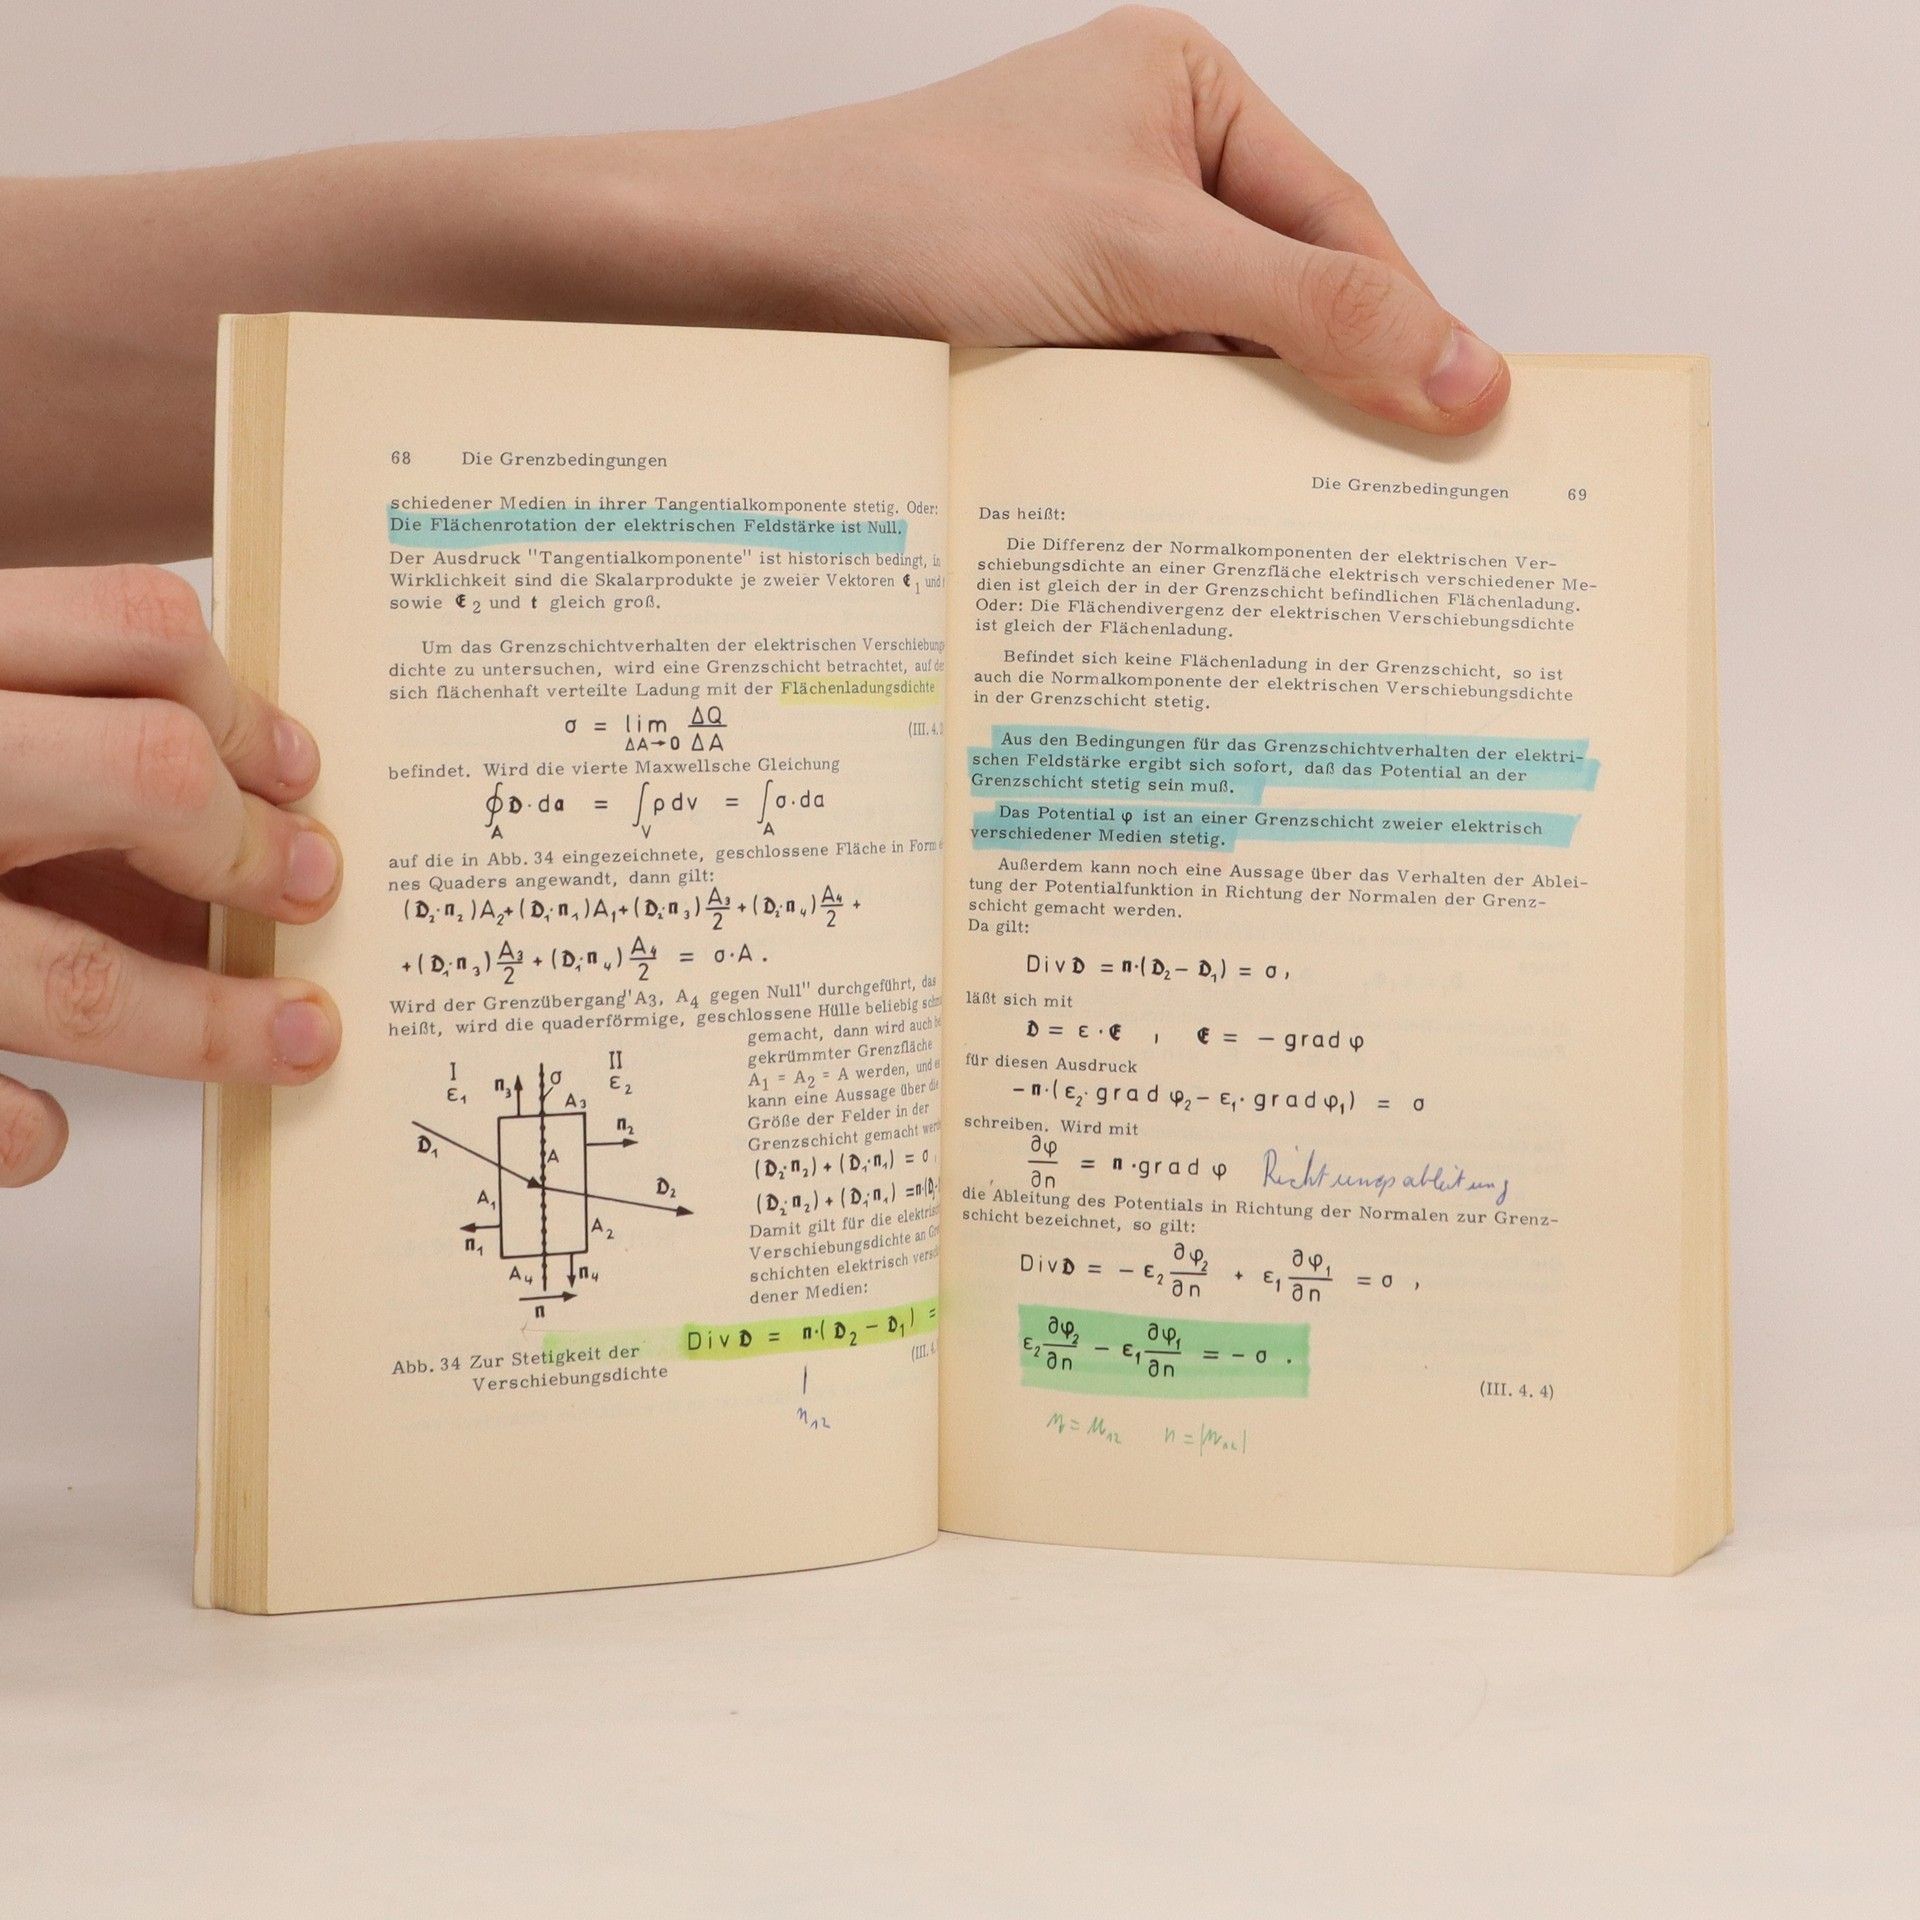 68 Die Grenzbedingungen
schiedener Medien in ihrer Tangentialkomponente stetig. Oder:
Die Flächenrotation der elektrischen Feldstärke ist Null.
Der Ausdruck "Tangentialkomponente" ist historisch bedingt, in
Wirklichkeit sind die Skalarprodukte je zweier Vektoren 𝕰₁ und
sowie 𝕰₂ und t gleich groß.
Um das Grenzschichtverhalten der elektrischen Verschiebung
dichte zu untersuchen, wird eine Grenzschicht betrachtet, auf
sich flächenhaft verteilte Ladung mit der Flächenladungsdichte
σ = lim ΔQ/ΔA
ΔA→0
(III. 4.
befindet. Wird die vierte Maxwellsche Gleichung
∮_A 𝕯·d𝖆 = ∫_V ρ dv = ∫_A σ·da
auf die in Abb. 34 eingezeichnete, geschlossene Fläche in Form
nes Quaders angewandt, dann gilt:
(𝕯₂·𝖓₂)A₂+(𝕯₁·𝖓₁)A₁+(𝕯₂·𝖓₃)A₃/2+(𝕯₂·𝖓₄)A₄/2 +
+(𝕯₁·𝖓₃)A₃/2+(𝕯₁·𝖓₄)A₄/2 = σ·A.
Wird der Grenzübergang "A₃, A₄ gegen Null" durchgeführt, das
heißt, wird die quaderförmige, geschlossene Hülle beliebig
gemacht, dann wird auch
gekrümmter Grenzfläche
A₁ = A₂ = A werden, und
kann eine Aussage über die
Größe der Felder in der
Grenzschicht gemacht
(𝕯₂·𝖓₂)+(𝕯₁·𝖓₁) = σ
(𝕯₂·𝖓₂)+(𝕯₁·𝖓₁) =𝖓·(𝕯
Damit gilt für die
Verschiebungsdichte an
schichten elektrisch
dener Medien:
I II
ε₁ ε₂
𝖓₃ σ A₃
𝕯₁ 𝖓₂
A
A₁ 𝕯₂
𝖓₁ A₂
A₄ 𝖓₄
𝖓
Div𝕯 = 𝖓·(𝕯₂ − 𝕯₁) =
(III. 4.
Abb. 34 Zur Stetigkeit der
Verschiebungsdichte
n₁₂
Die Grenzbedingungen 69
Das heißt:
Die Differenz der Normalkomponenten der elektrischen Ver-
schiebungsdichte an einer Grenzfläche elektrisch verschiedener Me-
dien ist gleich der in der Grenzschicht befindlichen Flächenladung.
Oder: Die Flächendivergenz der elektrischen Verschiebungsdichte
ist gleich der Flächenladung.
Befindet sich keine Flächenladung in der Grenzschicht, so ist
auch die Normalkomponente der elektrischen Verschiebungsdichte
in der Grenzschicht stetig.
Aus den Bedingungen für das Grenzschichtverhalten der elektri-
schen Feldstärke ergibt sich sofort, daß das Potential an der
Grenzschicht stetig sein muß.
Das Potential φ ist an einer Grenzschicht zweier elektrisch
verschiedener Medien stetig.
Außerdem kann noch eine Aussage über das Verhalten der Ablei-
tung der Potentialfunktion in Richtung der Normalen der Grenz-
schicht gemacht werden.
Da gilt:
Div𝕯 = 𝖓·(𝕯₂ − 𝕯₁) = σ,
läßt sich mit
𝕯 = ε·𝕰 , 𝕰 = − grad φ
für diesen Ausdruck
−𝖓·(ε₂·grad φ₂ − ε₁·grad φ₁) = σ
schreiben. Wird mit
∂φ/∂n = 𝖓·grad φ Richtungsableitung
die Ableitung des Potentials in Richtung der Normalen zur Grenz-
schicht bezeichnet, so gilt:
Div𝕯 = − ε₂ ∂φ₂/∂n + ε₁ ∂φ₁/∂n = σ ,
ε₂ ∂φ₂/∂n − ε₁ ∂φ₁/∂n = − σ .
(III. 4. 4)
𝖓 = 𝖓₁₂ n = |𝖓₁₂|